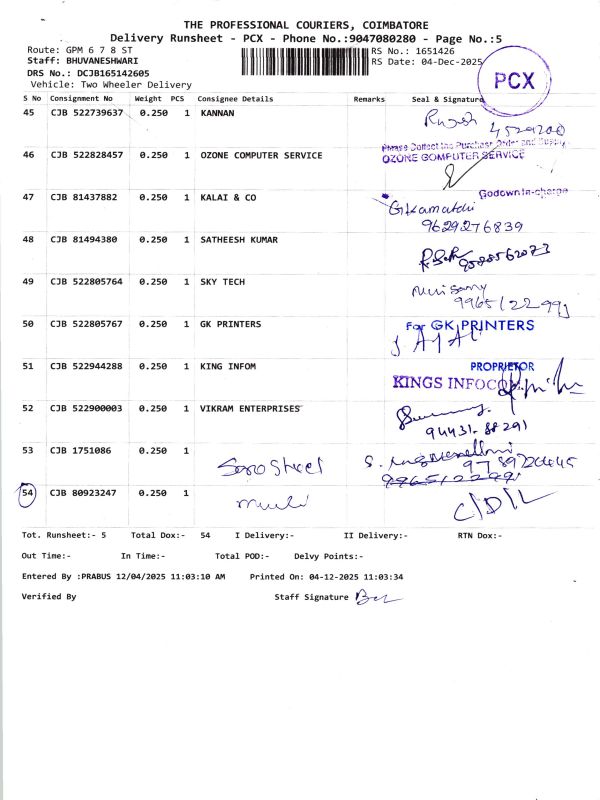 THE PROFESSIONAL COURIERS, COIMBATORE
Delivery Runsheet - PCX - Phone No.:9047080280 - Page No.:5
Route: GPM 6 7 8 ST
RS No.: 1651426
Staff: BHUVANESHWARI
RS Date: 04-Dec-2025
DRS No.: DCJB165142605
Vehicle: Two Wheeler Delivery
PCX
S No Consignment No Weight PCS Consignee Details Remarks Seal & Signature
45 CJB 522739637 0.250 1 KANNAN
Rajesh
4529200
46 CJB 522828457 0.250 1 OZONE COMPUTER SERVICE
Please Collect the Purchase Order and Supply
OZONE COMPUTER SERVICE
Godown In-charge
47 CJB 81437882 0.250 1 KALAI & CO
G.Kamatchi
9629276839
48 CJB 81494380 0.250 1 SATHEESH KUMAR
9588562073
49 CJB 522805764 0.250 1 SKY TECH
9965122991
50 CJB 522805767 0.250 1 GK PRINTERS
For GK PRINTERS
PROPRIETOR
51 CJB 522944288 0.250 1 KING INFOM
KINGS INFOCO
52 CJB 522900003 0.250 1 VIKRAM ENTERPRISES
94431-88291
53 CJB 1751086 0.250 1
54 CJB 80923247 0.250 1
C/D/L
Tot. Runsheet:- 5 Total Dox:- 54 I Delivery:- II Delivery:- RTN Dox:-
Out Time:- In Time:- Total POD:- Delvy Points:-
Entered By :PRABUS 12/04/2025 11:03:10 AM Printed On: 04-12-2025 11:03:34
Verified By Staff Signature